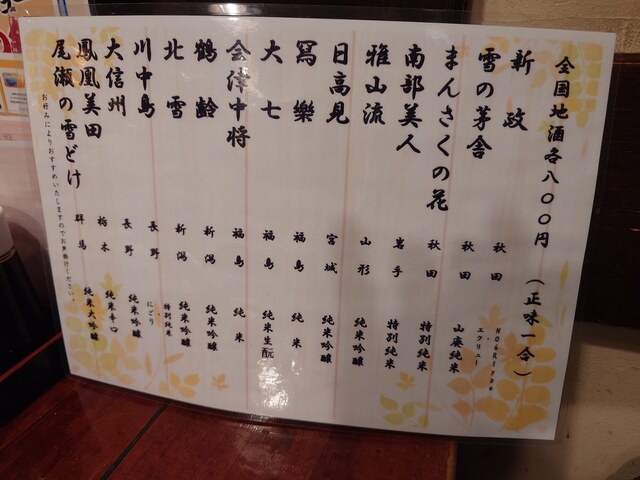 全国地酒各八〇〇円 (正味一合)
新政 秋田 No6 R-type エクリュ
雪の茅舎 秋田 山廃純米
まんさくの花 秋田 特別純米
南部美人 岩手 特別純米
雅山流 山形 純米吟醸
日高見 宮城 純米吟醸
冩樂 福島 純米
大七 福島 純米生酛
会津中将 福島 純米
鶴齢 新潟 純米吟醸
北雪 新潟 純米吟醸 特別純米
川中島 長野 にごり
大信州 長野 純米吟醸
鳳凰美田 栃木 純米辛口
尾瀬の雪どけ 群馬 純米大吟醸
お好みによりおすすめいたしますのでお声掛けください。